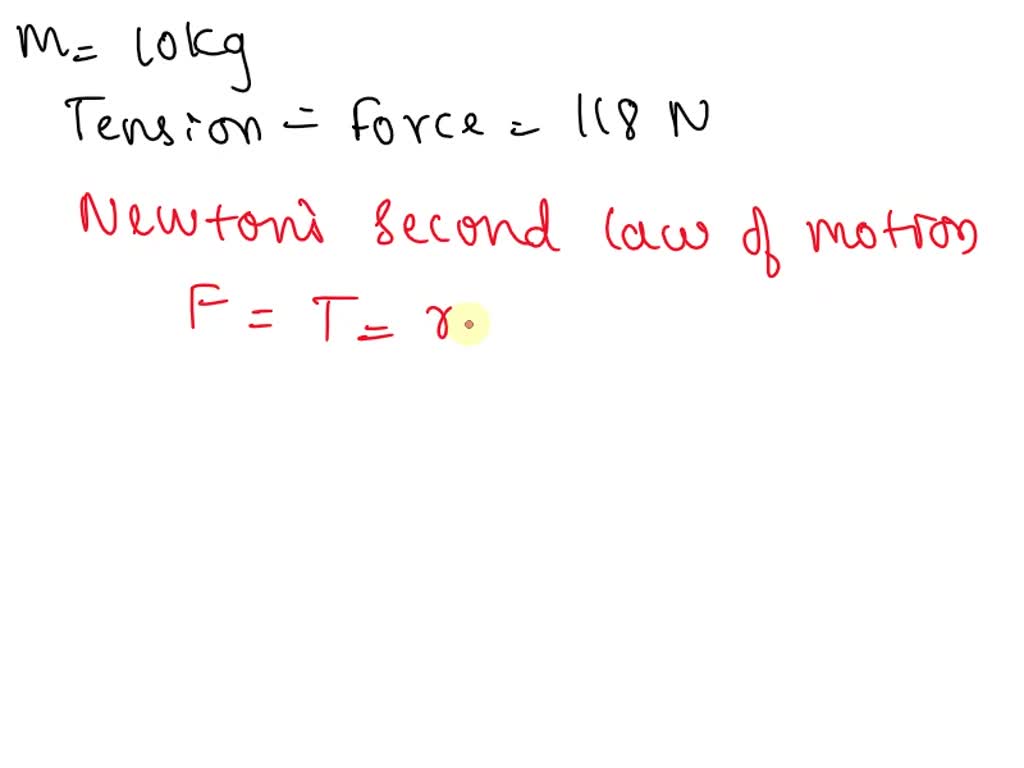 M = 10kg
Tension = Force = 118 N
Newton's second law of motion
F = T =